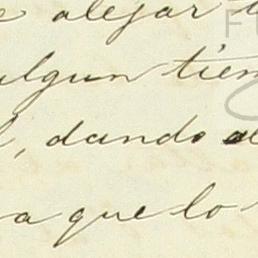 e alejar
algun tiem
, dando al
a que lo